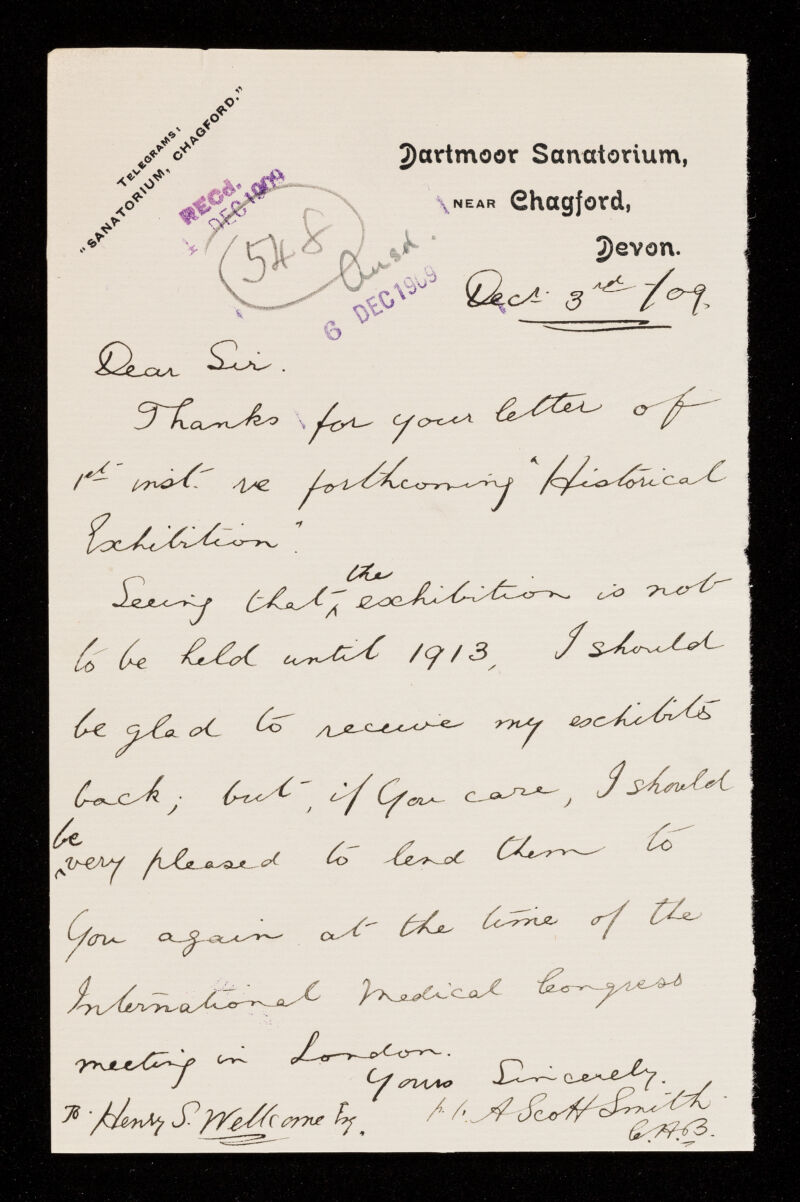 TELEGRAMS:
"SANATORIUM, CHAGFORD."
RECd.
4 DEC 1909
548
Ansd.
6 DEC 1909
Dartmoor Sanatorium,
NEAR Chagford,
Devon.
Decr. 3rd /09.
Dear Sir.
Thanks for your letter of
1st inst. re forthcoming "Historical
Exhibition".
Seeing that the exhibition is not
to be held until 1913, I should
be glad to receive my exhibits
back; but, if you care, I should
be very pleased to lend them to
you again at the time of the
International Medical Congress
meeting in London.
Yours Sincerely.
To. Henry S. Wellcome Esq.
A Scott Smith.